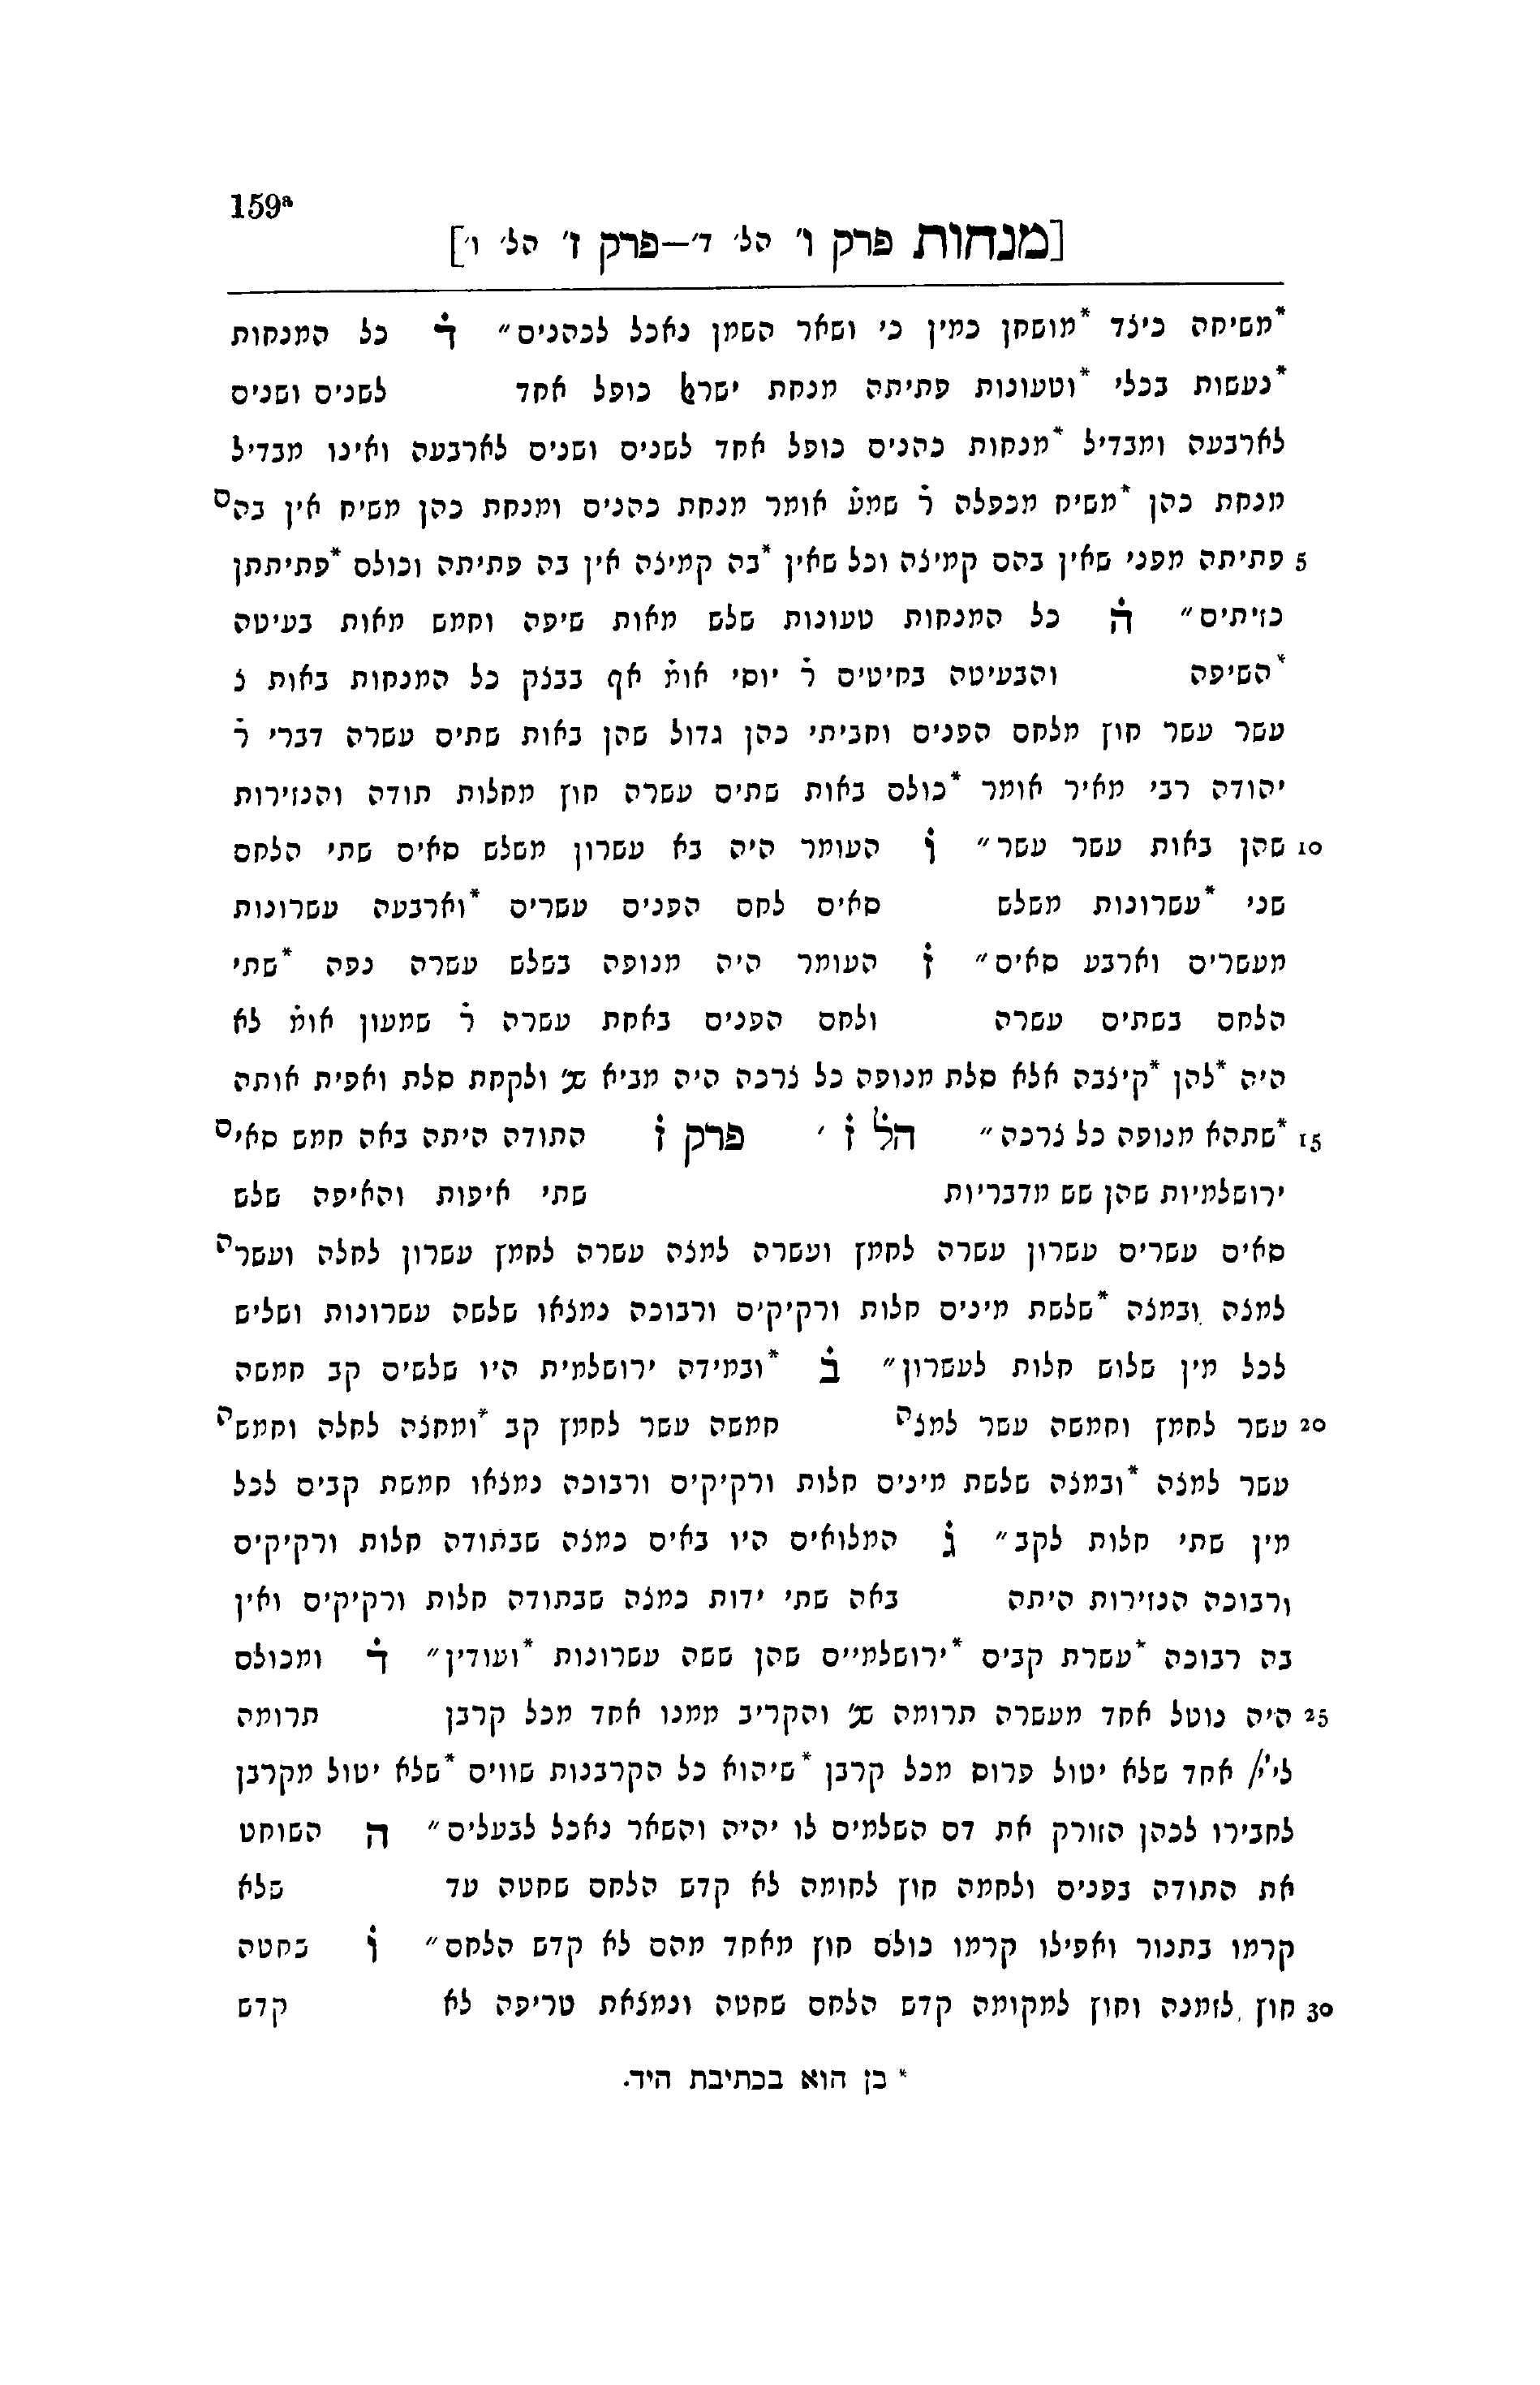 159ª
[מנחות פרק ו' הל' ד'—פרק ז' הל' ו']
*משיחה כיצד *מושחן כמין כי ושאר השמן נאכל לכהנים״ ד̇ כל המנחות
*נעשות בכלי *וטעונות פתיתה מנחת ישרﭏ כופל אחד לשנים ושנים
לארבעה ומבדיל *מנחות כהנים כופל אחד לשנים ושנים לארבעה ואינו מבדיל
מנחת כהן *משיח מכפלה ר̇ שמע̇ אומר מנחת כהנים ומנחת כהן משיח אין בהם
5 פתיתה מפני שאין בהם קמיצה וכל שאין *בה קמיצה אין בה פתיתה וכולם *פתיתתן
כזיתים״ ה̇ כל המנחות טעונות שלש מאות שיפה וחמש מאות בעיטה
*השיפה והבעיטה בחיטים ר̇ יוסי אומ̇ אף בבצק כל המנחות באות צ
עשר עשר חוץ מלחם הפנים וחביתי כהן גדול שהן באות שתים עשרה דברי ר̇
יהודה רבי מאיר אומר *כולם באות שתים עשרה חוץ מחלות תודה והנזירות
10 שהן באות עשר עשר״ ו̇ העומר היה בא עשרון משלש סאים שתי הלחם
שני *עשרונות משלש סאים לחם הפנים עשרים *וארבעה עשרונות
מעשרים וארבע סאים״ ז̇ העומר היה מנופה בשלש עשרה נפה *שתי
הלחם בשתים עשרה ולחם הפנים באחת עשרה ר̇ שמעון אומ̇ לא
היה *להן *קיצבה אלא סלת מנופה כל צרכה היה מביא שנ' ולקחת סלת ואפית אותה
15 *שתהא מנופה כל צרכה״ הל̇ ז̇ ' פרק ז̇ התודה היתה באה חמש סאים
ירושלמיות שהן שש מדבריות שתי איפות והאיפה שלש
סאים עשרים עשרון עשרה לחמץ ועשרה למצה עשרה לחמץ עשרון לחלה ועשרה
למצה ובמצה *שלשת מינים חלות ורקיקים ורבוכה נמצאו שלשה עשרונות ושליש
לכל מין שלוש חלות לעשרון״ ב̇ *ובמידה ירושלמית היו שלשים קב חמשה
20 עשר לחמץ וחמשה עשר למצה חמשה עשר לחמץ קב *ומחצה לחלה וחמשה
עשר למצה *ובמצה שלשת מינים חלות ורקיקים ורבוכה נמצאו חמשת קבים לכל
מין שתי חלות לקב״ ג̇ המלואים היו באים כמצה שבתודה חלות ורקיקים
ורבוכה הנזירות היתה באה שתי ידות כמצה שבתודה חלות ורקיקים ואין
בה רבוכה *עשרת קבים *ירושלמיים שהן ששה עשרונות *ועודין״ ד̇ ומכולם
25 היה נוטל אחד מעשרה תרומה שנ' והקריב ממנו אחד מכל קרבן תרומה
לי'י/ אחד שלא יטול פרוס מכל קרבן *שיהוא כל הקרבנות שווים *שלא יטול מקרבן
לחבירו לכהן הזורק את דם השלמים לו יהיה והשאר נאכל לבעלים״ ה השוחט
את התודה בפנים ולחמה חוץ לחומה לא קדש הלחם שחטה עד שלא
קרמו בתנור ואפילו קרמו כולם חוץ מאחד מהם לא קדש הלחם״ ו̇ בחטה
30 חוץ לזמנה וחוץ למקומה קדש הלחם שחטה ונמצאת טריפה לא קדש
* כן הוא בכתיבת היד.